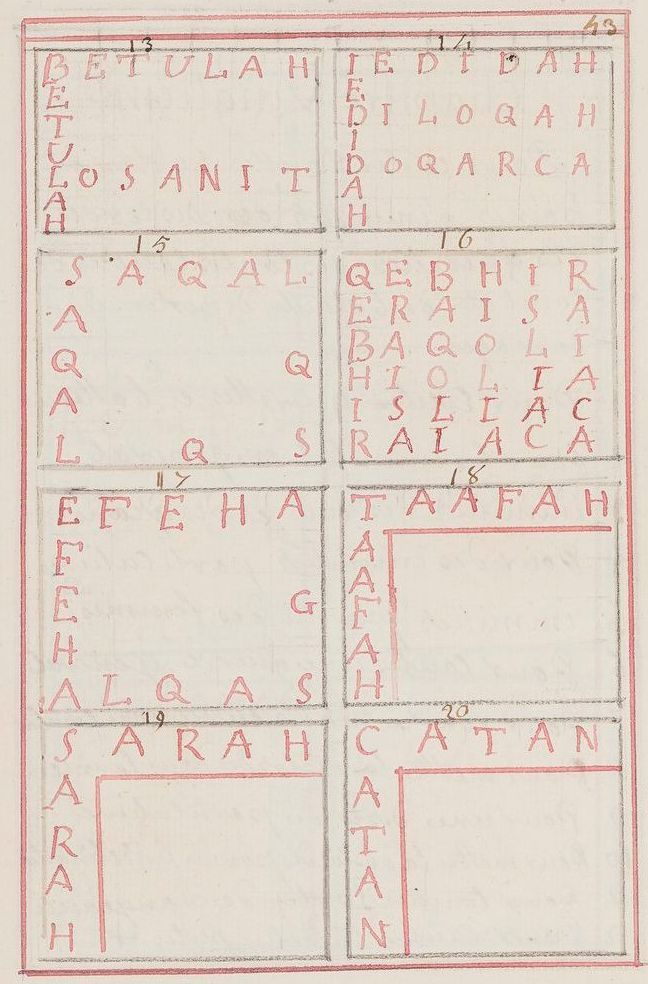 43
13
BETULAH
E
T
U
LOSANIT
A
H
14
IEDIDAH
E
DILOQAH
I
DOQARCA
A
H
15
SAQAL
A
Q Q
A
L Q S
16
QEBHIR
ERAISA
BAQOLI
HIOLIA
ISLIAC
RAIACA
17
EFEHA
F
E G
H
ALQAS
18
TAAFAH
A
A
F
A
H
19
SARAH
A
R
A
H
20
CATAN
A
T
A
N